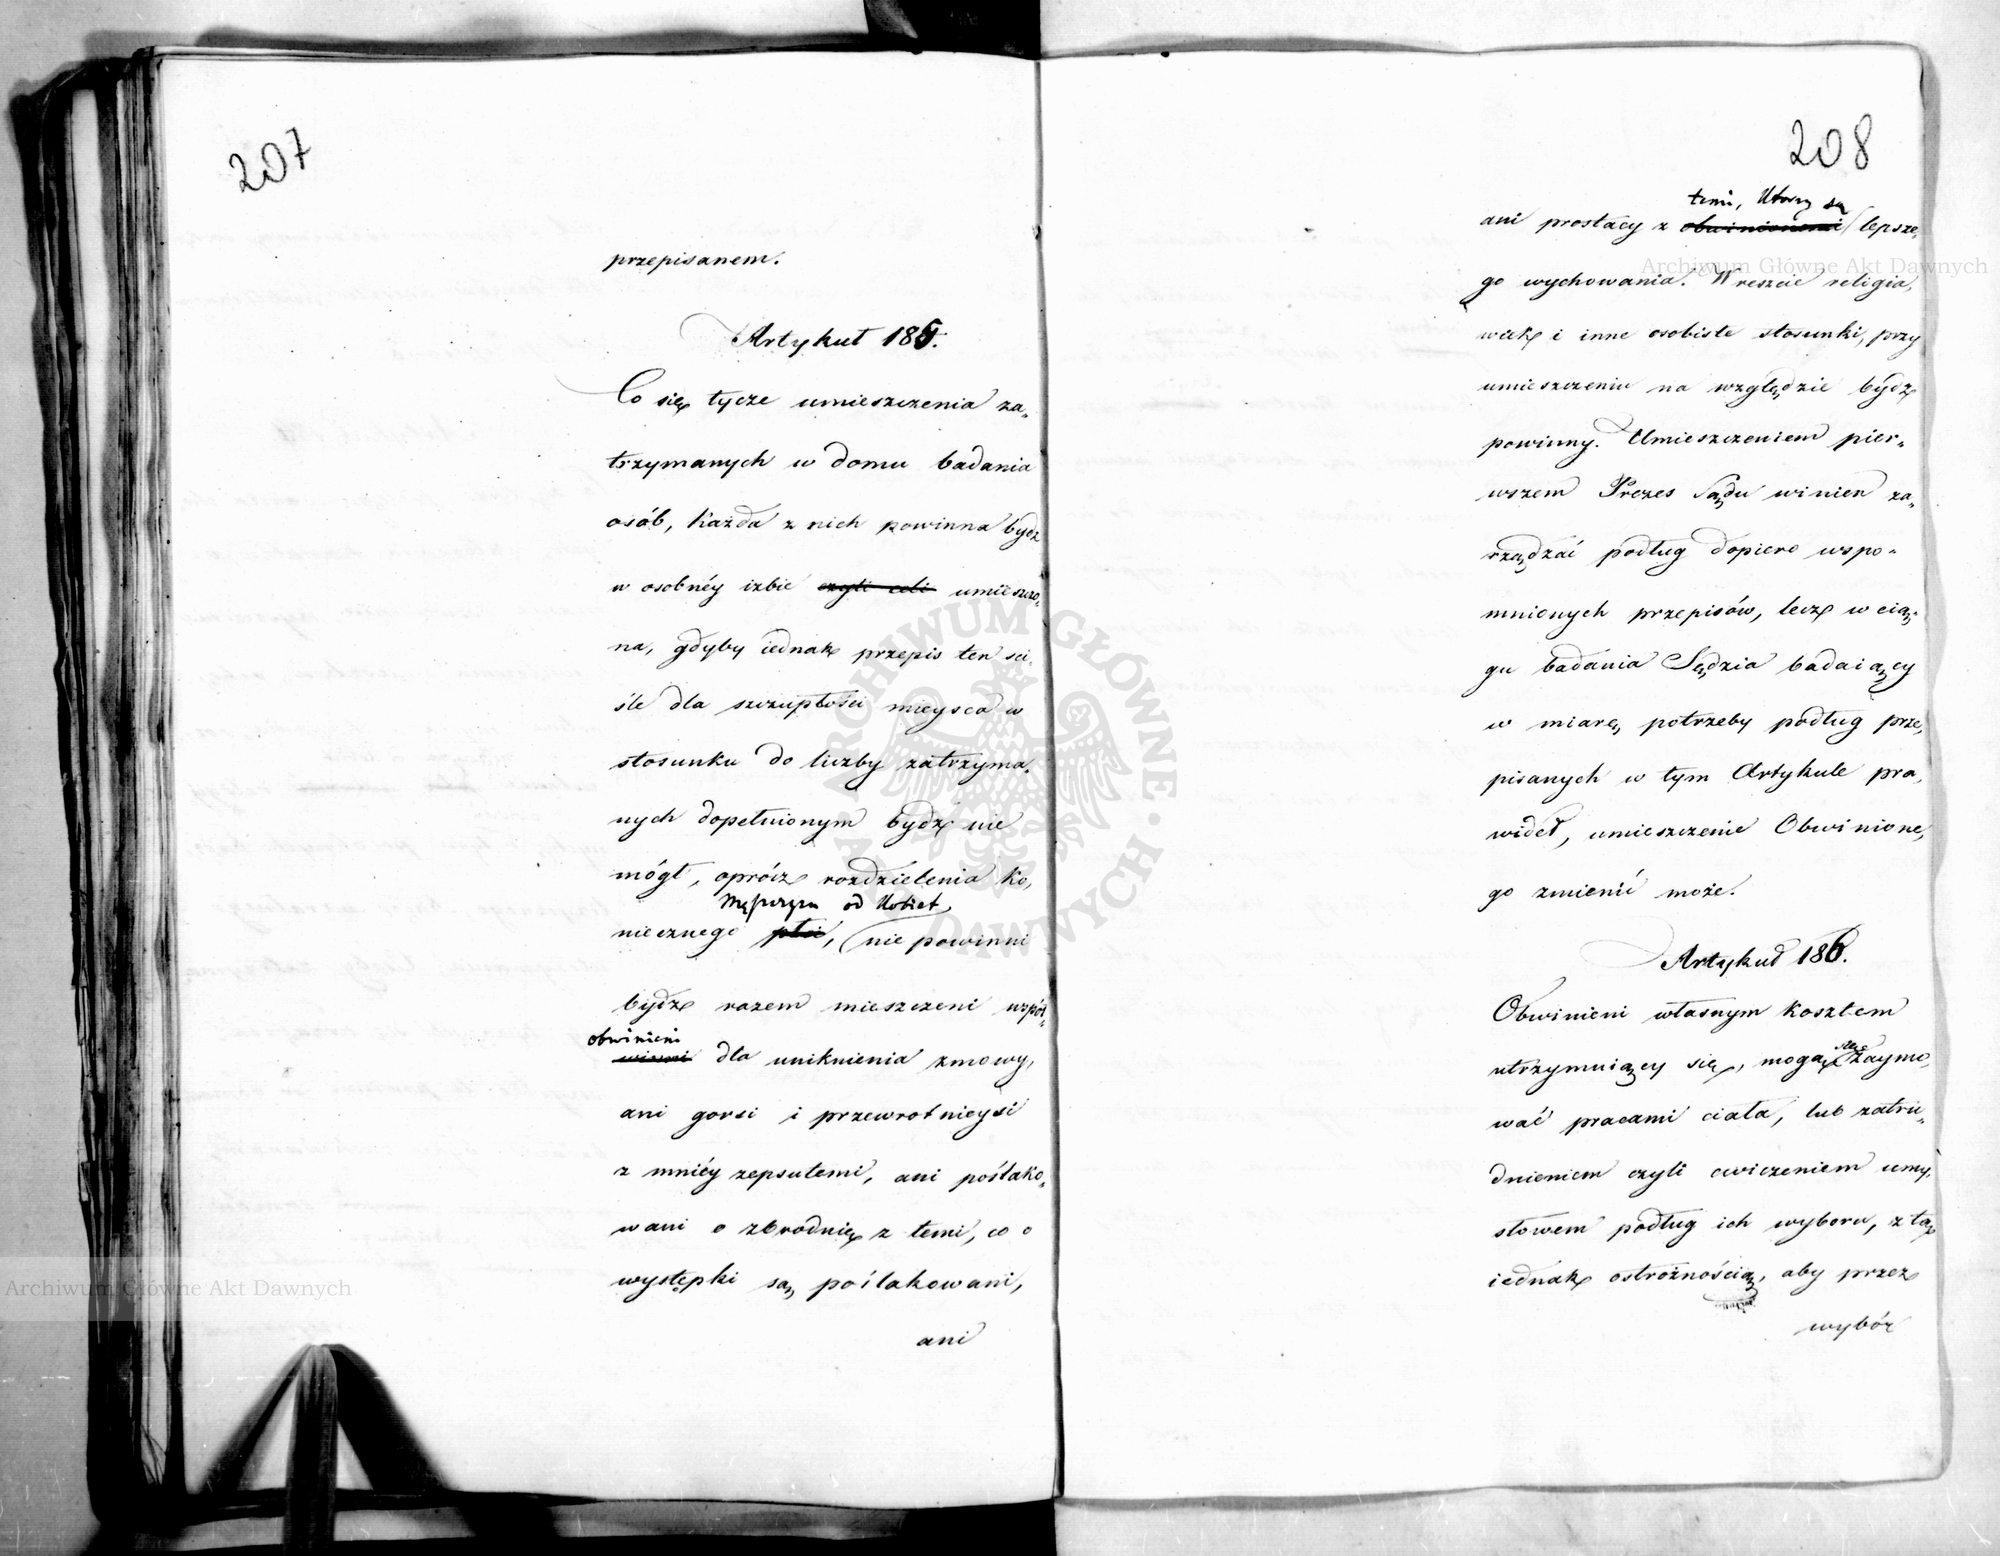 207
przepisanem.
Artykuł 185.
Co się tycze umieszczenia za„
trzymanych w domu badania
osób, każda z nich powinna bydz
w osobnéy izbie czyli celi umieszczo„
na, gdyby iednak przepis ten sci„
śle dla szczupłości mieysca w
stosunku do liczby zatrzyma„
nych dopełnionym bydz nie
mógł, oprócz rozdzielenia ko„
Męszczyzn od Kobiet
niecznego płci, nie powinni
bydz razem mieszczeni wspól„
obwinieni
winni dla uniknienia zmowy,
ani gorsi i przewrotnieysi
z mniéy zepsutemi, ani poślako„
wani o zbrodnię z temi, co o
występki są poślakowani,
ani
208
temi, którzy są
ani prostacy z obwinionemi lepsze„
go wychowania. Wreszcie religia,
wiek i inne osobiste stosunki, przy
umieszczeniu na względzie bydz
powinny. Umieszczeniem pier„
wszem Prezes Sądu winien za„
rządzać podług dopiero wspo„
mnionych przepisów, lecz w cią„
gu badania Sędzia badaiący
w miarę potrzeby podług prze„
pisanych w tym Artykule pra„
wideł, umieszczenie Obwinione„
go zmienić może.
Artykuł 186.
Obwinieni własnym kosztem
utrzymuiący się, mogą się zaymo„
wać pracami ciała, lub zatru„
dnieniem czyli cwiczeniem umy„
słowem podług ich wyboru, z tą
iednak ostrożnością, aby przez
wybór
Archiwum Główne Akt Dawnych
Archiwum Główne Akt Dawnych
ARCHIWUM GŁÓWNE AKT DAWNYCH